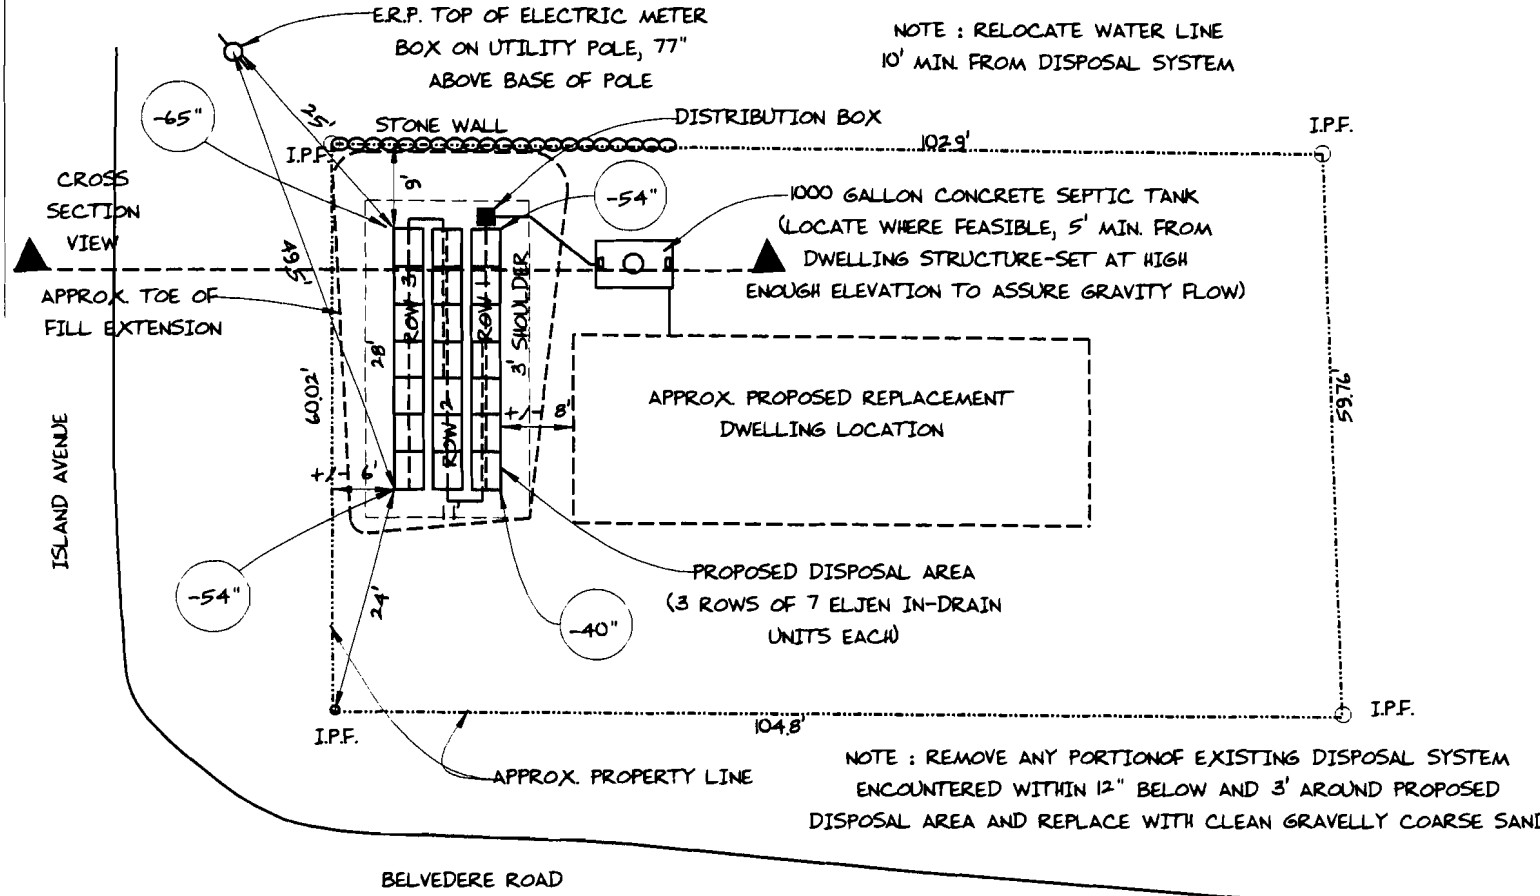 E.R.P. TOP OF ELECTRIC METER
BOX ON UTILITY POLE, 77"
ABOVE BASE OF POLE
NOTE : RELOCATE WATER LINE
10' MIN. FROM DISPOSAL SYSTEM
-65"
25'
STONE WALL
DISTRIBUTION BOX
I.P.F.
102.9'
I.P.F.
CROSS
SECTION
VIEW
9'
-54"
1000 GALLON CONCRETE SEPTIC TANK
(LOCATE WHERE FEASIBLE, 5' MIN. FROM
DWELLING STRUCTURE-SET AT HIGH
ENOUGH ELEVATION TO ASSURE GRAVITY FLOW)
49.5'
APPROX. TOE OF
FILL EXTENSION
ROW 3
ROW 1
3' SHOULDER
28'
ROW 2
60.02'
59.76'
APPROX. PROPOSED REPLACEMENT
DWELLING LOCATION
+/- 8'
+/- 6'
ISLAND AVENUE
-54"
24'
-40"
PROPOSED DISPOSAL AREA
(3 ROWS OF 7 ELJEN IN-DRAIN
UNITS EACH)
I.P.F.
104.8'
I.P.F.
APPROX. PROPERTY LINE
NOTE : REMOVE ANY PORTIONOF EXISTING DISPOSAL SYSTEM
ENCOUNTERED WITHIN 12" BELOW AND 3' AROUND PROPOSED
DISPOSAL AREA AND REPLACE WITH CLEAN GRAVELLY COARSE SAND
BELVEDERE ROAD